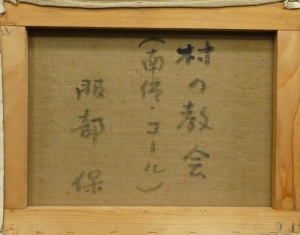 村の教会
(南佛・コール)
服部 保